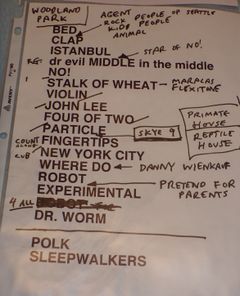 WOODLAND PARK
AGENT PEOPLE OF SEATTLE
ROCK PEOPLE
KIDS
ANIMAL
BED
CLAP
ISTANBUL
STAR OF NO!
dr evil MIDDLE in the middle
NO!
STALK OF WHEAT
MARACAS
FLEXITONE
VIOLIN
JOHN LEE
FOUR OF TWO
PARTICLE
SKYE 9
PRIMATE HOUSE
REPTILE HOUSE
COUNT ALONG
FINGERTIPS
NEW YORK CITY
WHERE DO
DANNY WIENKAUF
ROBOT
PRETEND FOR PARENTS
EXPERIMENTAL
4 ALL
DR. WORM
POLK
SLEEPWALKERS